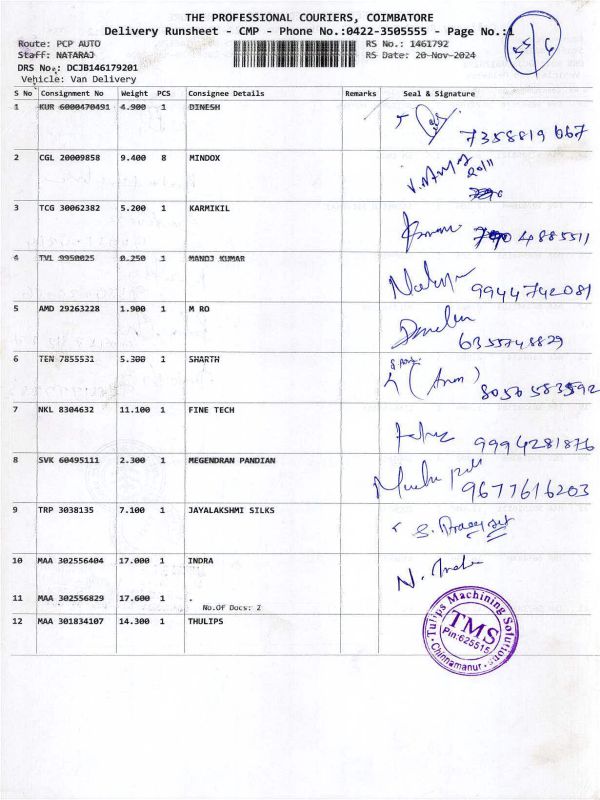 THE PROFESSIONAL COURIERS, COIMBATORE
Delivery Runsheet - CMP - Phone No.:0422-3505555 - Page No.:1
Route: PCP AUTO RS No.: 1461792
Staff: NATARAJ RS Date: 20-Nov-2024
DRS No.: DCJB146179201
Vehicle: Van Delivery
35/6
S No Consignment No Weight PCS Consignee Details Remarks Seal & Signature
1 KUR 6000470491 4.900 1 DINESH
7358819667
2 CGL 20009858 9.400 8 MINDOX
20/11
3 TCG 30062382 5.200 1 KARMIKIL
4885511
4 TVL 9950025 0.250 1 MANOJ KUMAR
9944742081
5 AMD 29263228 1.900 1 M RO
6355748829
6 TEN 7855531 5.300 1 SHARTH
(Arun) 8050583592
7 NKL 8304632 11.100 1 FINE TECH
9994281876
8 SVK 60495111 2.300 1 MEGENDRAN PANDIAN
9677616203
9 TRP 3038135 7.100 1 JAYALAKSHMI SILKS
10 MAA 302556404 17.000 1 INDRA
N. Indra
11 MAA 302556829 17.600 1 .
No.Of Docs: 2
12 MAA 301834107 14.300 1 THULIPS
Tulips Machining Solutions
TMS
Pin:625515
Chinnamanur